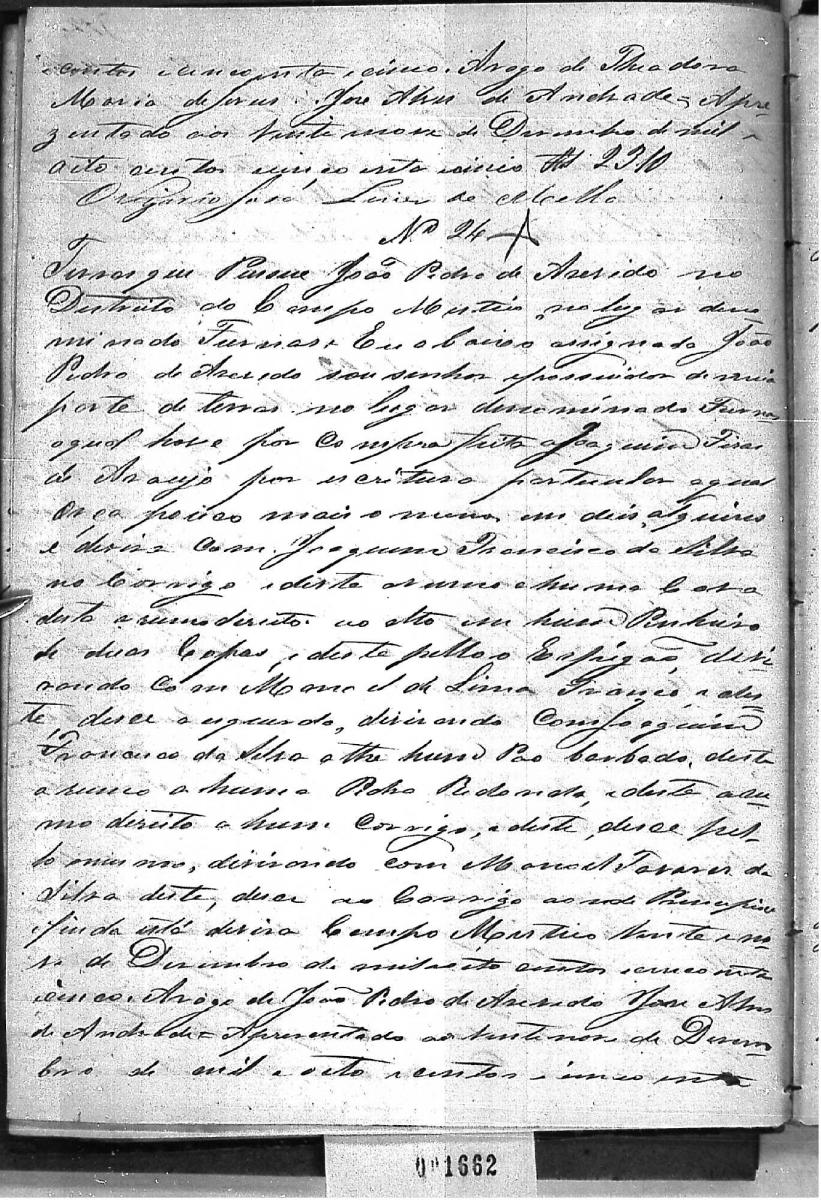 centos e cincoenta e cinco. Arogo de Theadora
Maria de Jesus. Jose Alves de Andrade = Apre-
zentado aos Vinte nove de Dezembro de mil e
oito centos e cincoenta e cinco 2310
O Vigario José Luis de Mello
Nº 24
Terras que Possue João Pedro de Azevedo no
Distrito do Campo Mestico, no lugar deno
minado Furnas = Eu abaixo assignado João
Pedro de Azevedo sou senhor e possuidor de uma
parte de terras no lugar denominado Furna
aqual houve por Compra feita a Joaquim
de Araujo por escritura particular aqual
Orça pouco mais o menos em dois alqueires
e deviza com Joaquim Francisco da Silva
no Corrigo e deste a rumo a huma Cova
desta a rumo direito ao alto em hum Pinheiro
de duas Copas, e deste pello o Espigão, devi
zando Com Manoel de Lima Franco, e des-
te, desce a esquerda, divizando Com Joaquim
Francisco da Silva athe hum Pao barbado, deste
a rumo a huma Pedra Redonda, e deste a ru-
mo direito a hum Corrigo, e deste, desce pel-
lo mesmo, divizando com Manoel Tavares da
Silva deste, desce ao Corrigo aonde Principiou
e finda esta deviza Campo Mestico Vinte e no-
ve de Dezembro de mil e oito centos e cincoenta
e cinco. Arogo de João Pedro de Azevedo Jose Alves
de Andrade = Aprezentado ao Vinte nove de Dezem-
bro de mil e oito e centos e cincoenta
001662